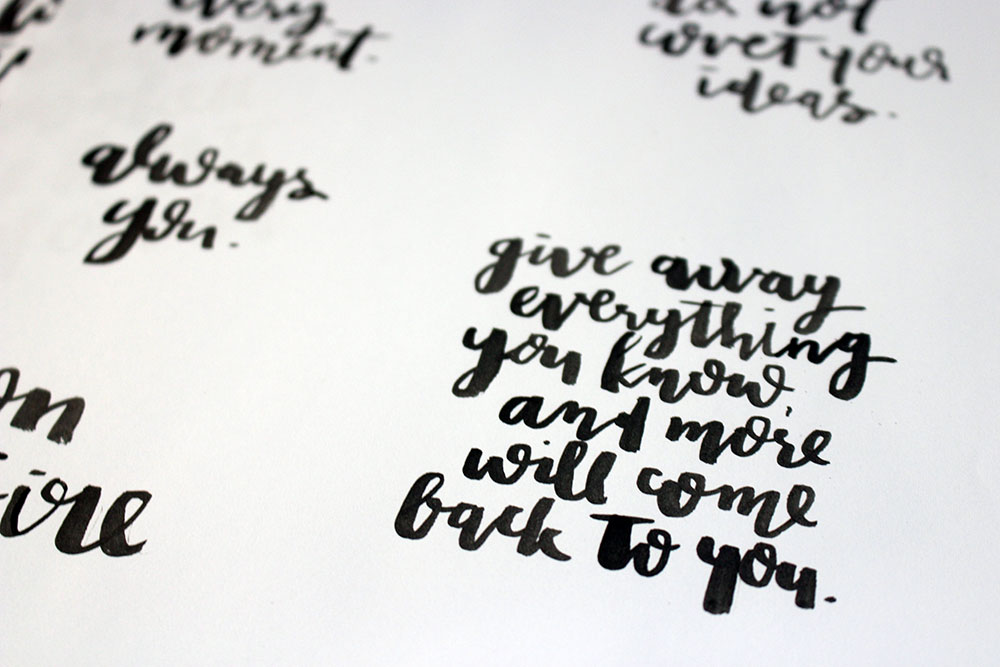 every
moment.
do not
covet your
ideas.
always
you.
give away
everything
you know,
and more
will come
back to you.